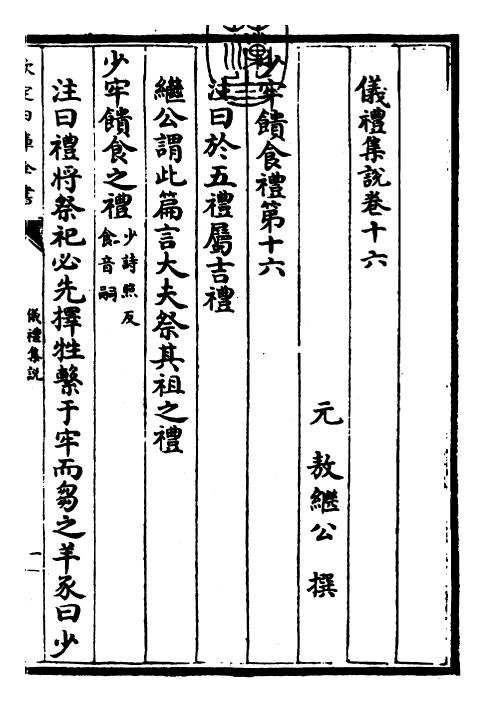 儀禮集説卷十六
元 敖繼公 撰
少牢饋食禮第十六
注曰於五禮屬吉禮
繼公謂此篇言大夫祭其祖之禮
少牢饋食之禮少詩照反食音嗣
注曰禮將祭祀必先擇牲繫于牢而芻之羊豕曰少
儀禮集説
一